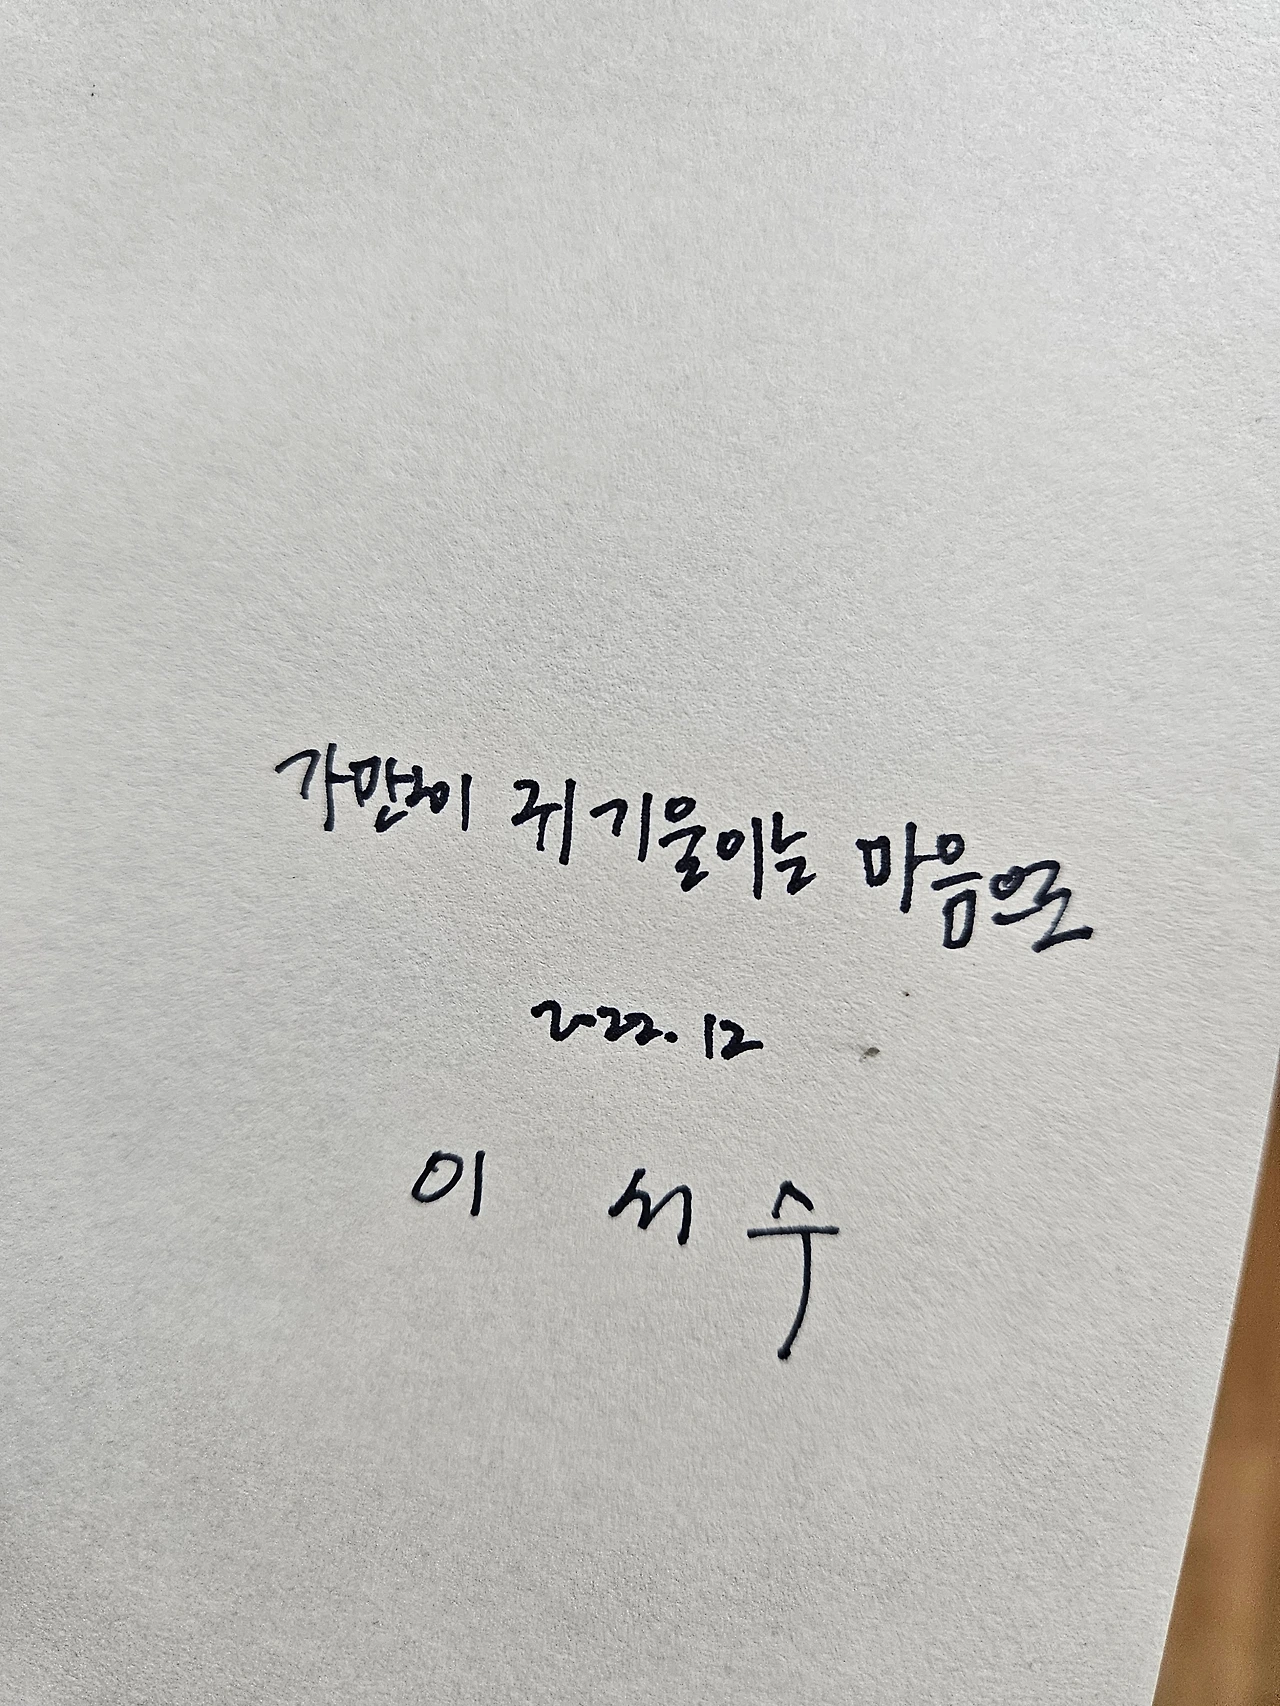 가만히 귀 기울이는 마음으로
2022. 12
이 서수